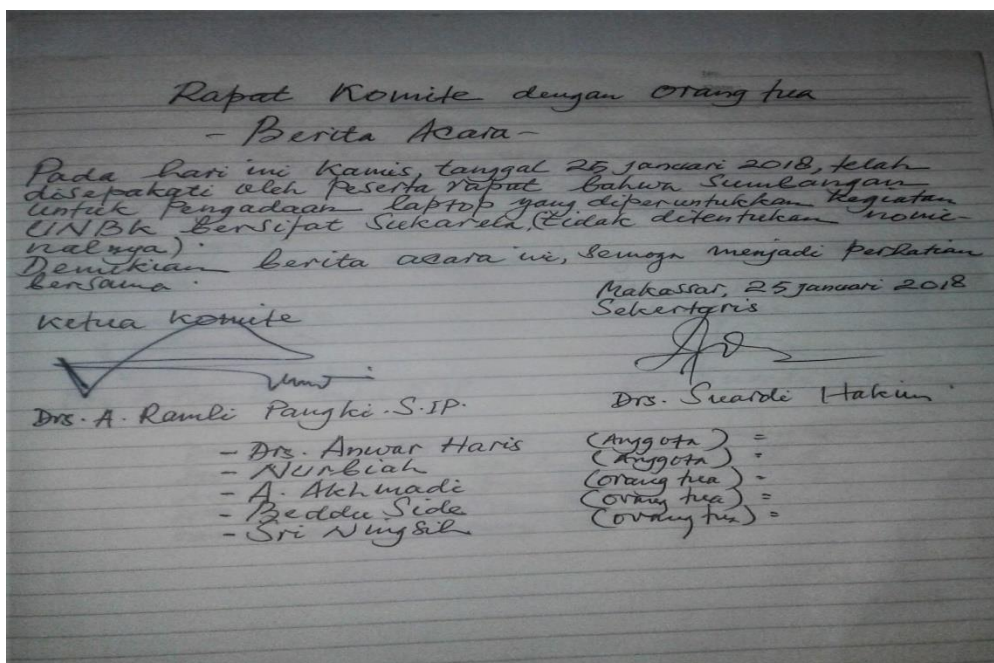 Rapat Komite dengan orang tua
- Berita Acara -
Pada hari ini Kamis, tanggal 25 Januari 2018, telah
disepakati oleh Peserta rapat bahwa Sumbangan
untuk Pengadaan laptop yang diperuntukkan kegiatan
UNBK Bersifat Sukarela, (tidak ditentukan nomi-
nalnya).
Demikian berita acara ini, semoga menjadi perhatian
bersama.
Makassar, 25 Januari 2018
Ketua Komite
Sekertaris
Drs. A. Ramli Pangki. S.IP.
Drs. Suardi Hakim
- Drs. Anwar Haris (Anggota) =
- Nurbiah (Anggota) =
- A. Akhmadi (orang tua) =
- Beddu Side (orang tua) =
- Sri Ningsih (orang tua) =